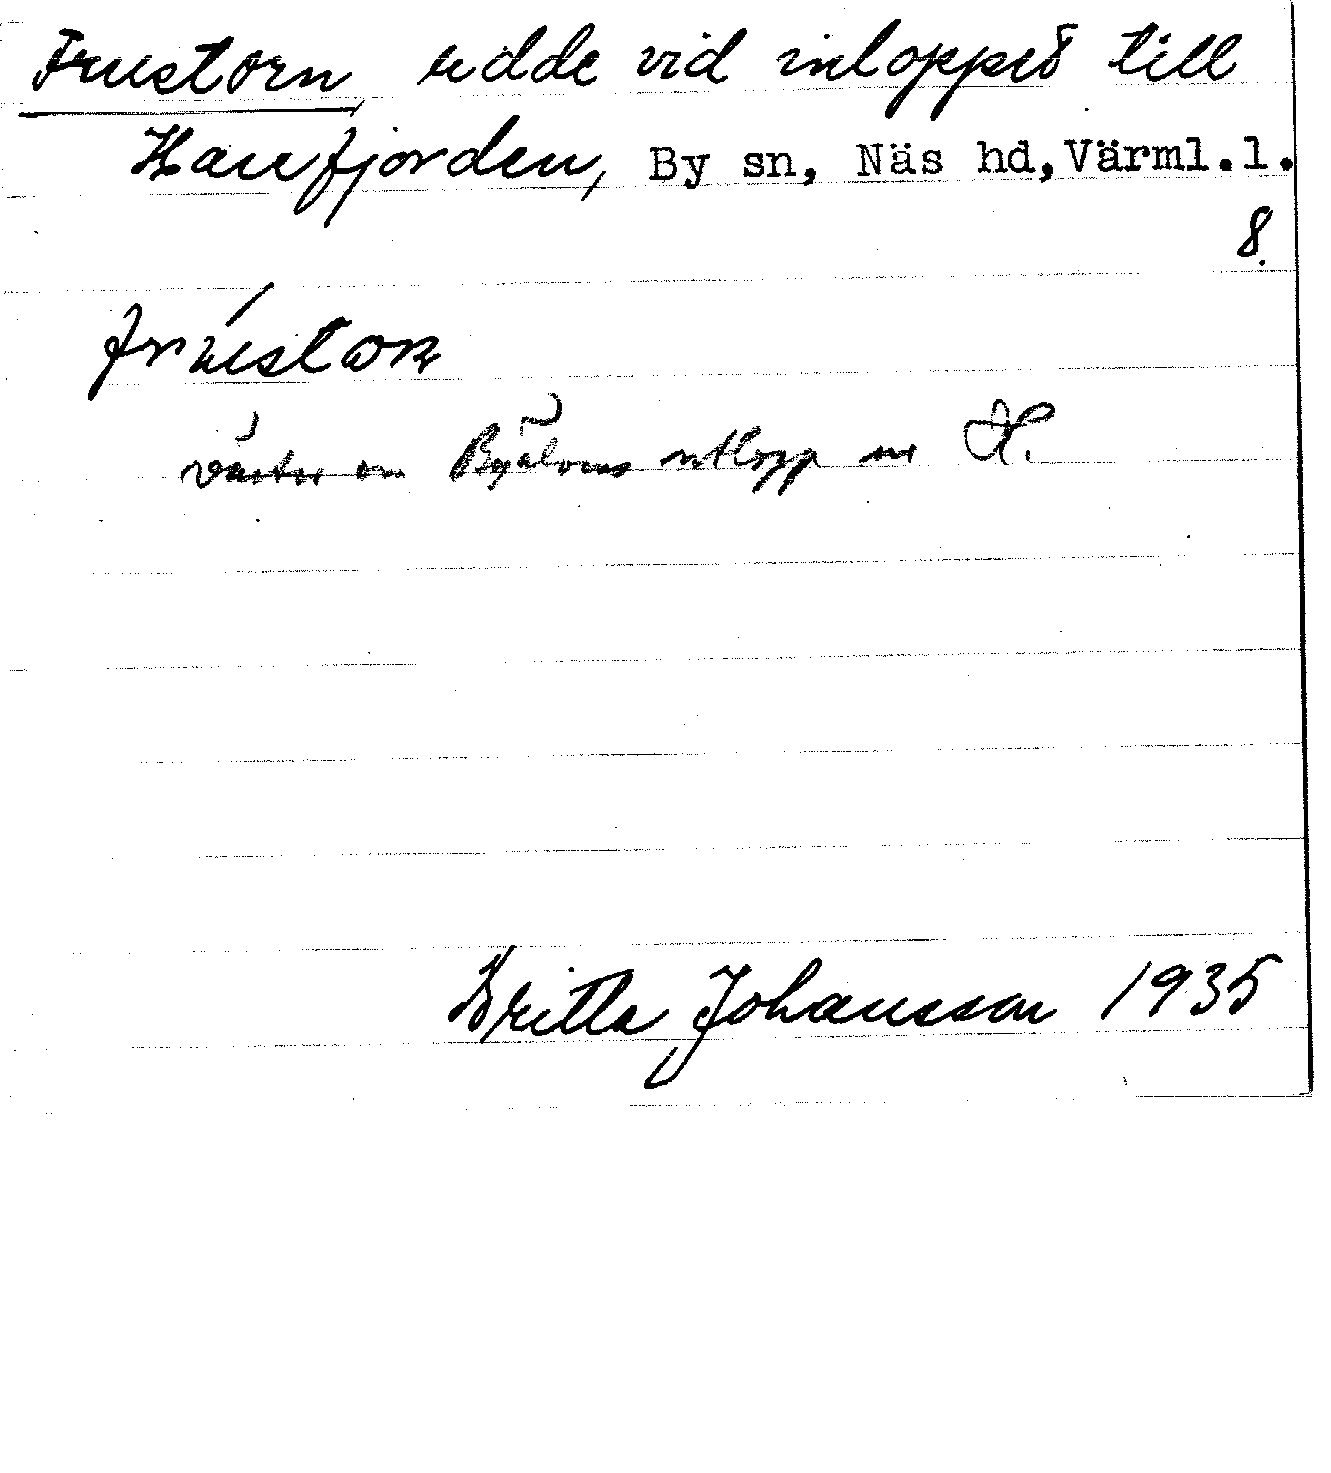 Frustorn, udde vid inloppet till
Harefjorden, By sn, Näs hd, Värml. l.
8.
frústoɳ
väster om Byälvens utlopp ur H.
Britta Johansson 1935